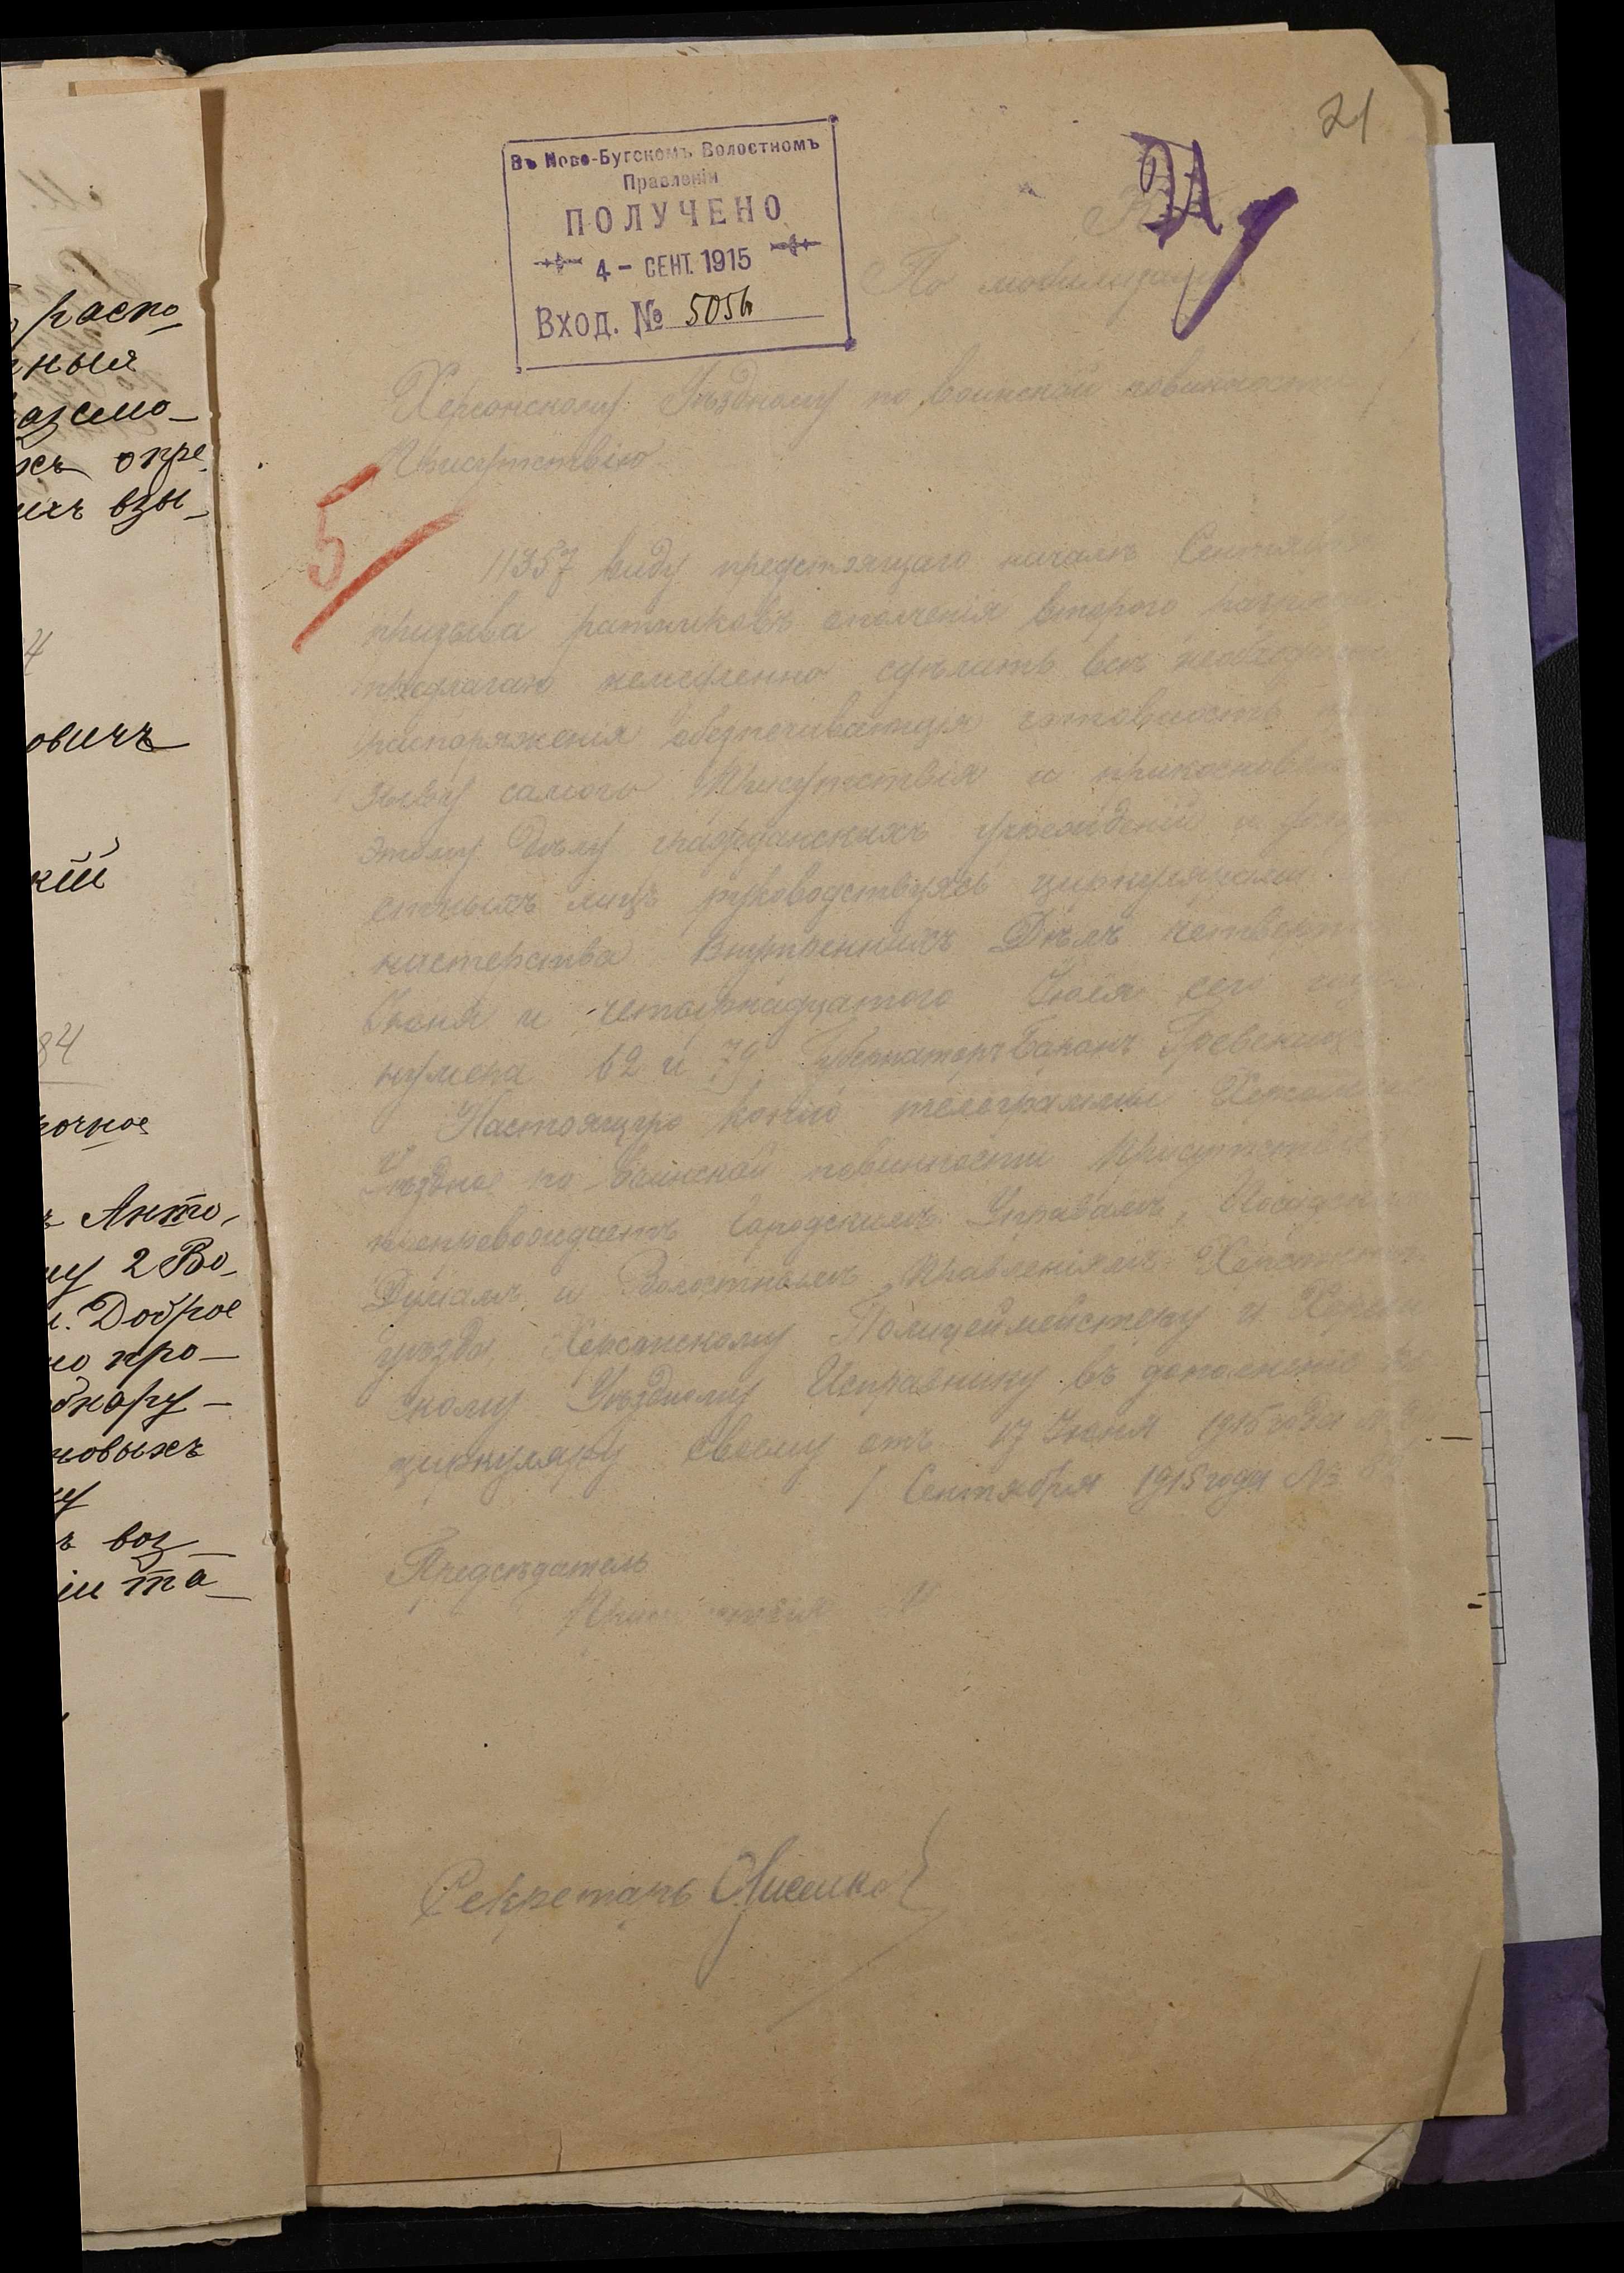 21
Въ Ново-Бугскомъ Волостномъ
Правленіи
ПОЛУЧЕНО
4 - СЕНТ. 1915
Вход. №
21
По мобилизаціи
Херсонскому Уѣздному по воинской повинности
Присутствію
5
11357 виду предстоящаго началѣ Сентября
призыва ратниковъ ополченія второго разряда
предлагаю немедленно сдѣлать всѣ необходимыя
распоряженія обезпечивающія готовность
зыву самого Присутствія и прикосновенныхъ
этому дѣлу гражданскихъ учрежденій и
стныхъ лицъ руководствуясь циркулярами
нистерства Внутреннихъ Дѣлъ четвертаго
Іюня и четырнадцатого Іюля сего года
нумера 62 и 79. Губернаторъ Баронъ Гревеницъ
Настоящую копію телеграммы Херсонское
Уѣздное по воинской повинности Присутствіе
препровождаетъ Городскимъ Управамъ, Посадскимъ
Думамъ и Волостнымъ Правленіямъ Херсонскаго
уѣзда Херсонскому Полицеймейстеру и Херсон
скому Уѣздному Исправнику въ дополненіе къ
циркуляру своему отъ 17 Іюня 1915 года №
1 Сентября 1915 года №
Предсѣдатель
Присутствія
Секретарь
распо
ныя
озсмо-
хъ опре
ихъ взы-
4
овичъ
кій
84
рочное
Анто,
му 2 Во-
Доброе
но про-
днару-
новыхъ
му
ъ воз-
іи та-